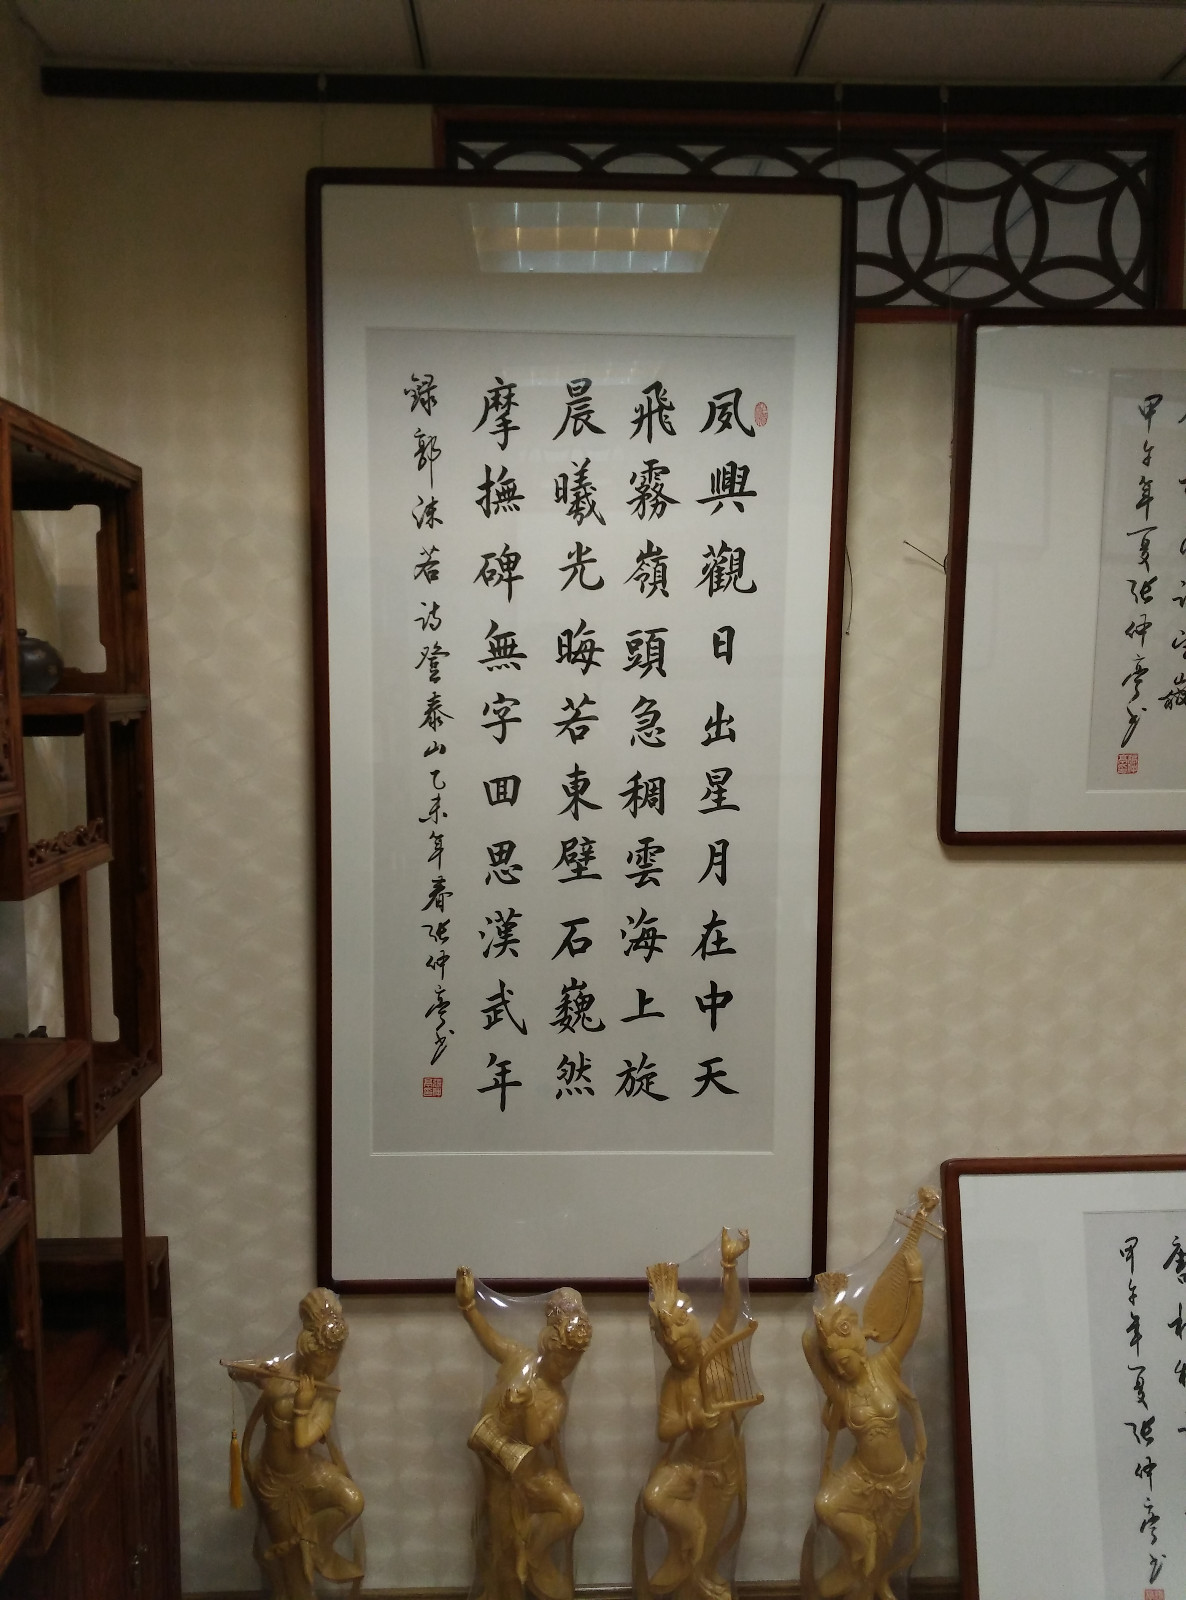 夙興觀日出星月在中天
飛霧嶺頭急稠雲海上旋
晨曦光晦若東壁石巍然
摩撫碑無字囬思漢武年
録郭沫若诗登泰山乙未年春张仲亭书
甲午年夏张仲亭书
甲午年夏张仲亭书